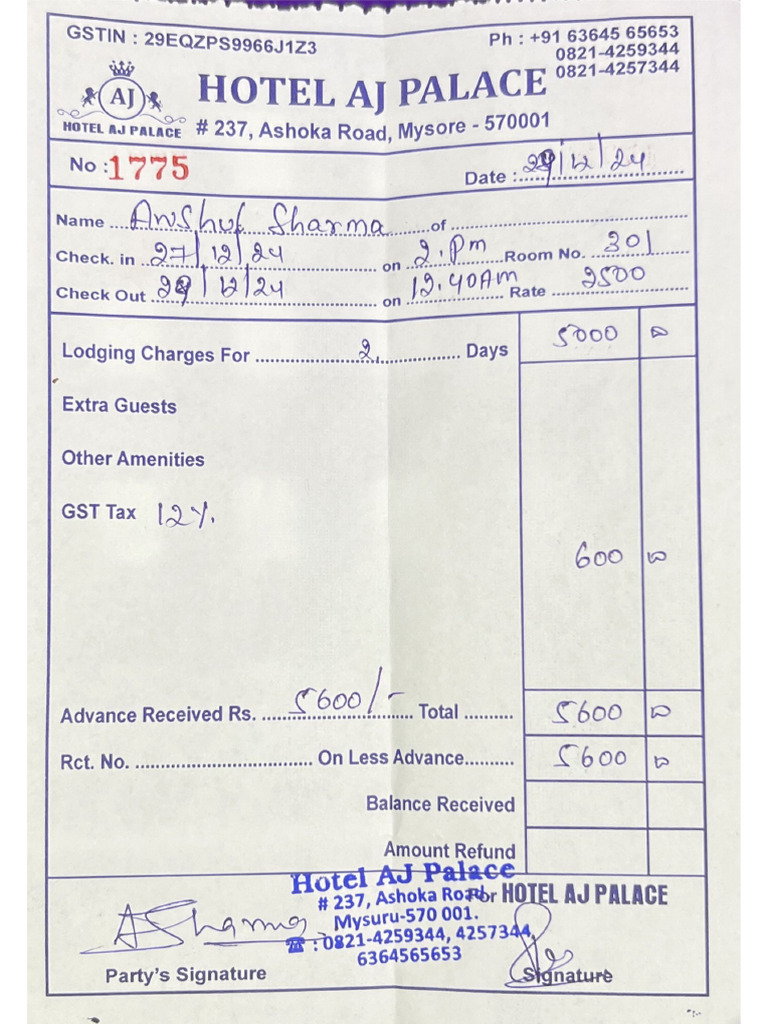 GSTIN : 29EQZPS9966J1Z3
Ph : +91 63645 65653
0821-4259344
0821-4257344
AJ
HOTEL AJ PALACE
HOTEL AJ PALACE
# 237, Ashoka Road, Mysore - 570001
No : 1775
Date : /12/24
Name Anshul Sharma of
Check. in 27/12/24 on 2. Pm Room No. 301
Check Out /12/24 on 12.40AM Rate 2500
Lodging Charges For 2. Days 5000
Extra Guests
Other Amenities
GST Tax 12%.
600
Advance Received Rs. 5600/- Total .......... 5600
Rct. No. .................................. On Less Advance.......... 5600
Balance Received
Amount Refund
Hotel AJ Palace
# 237, Ashoka Road,
Mysuru-570 001.
☎ : 0821-4259344, 4257344,
6364565653
For HOTEL AJ PALACE
ASharma
Party's Signature
Signature